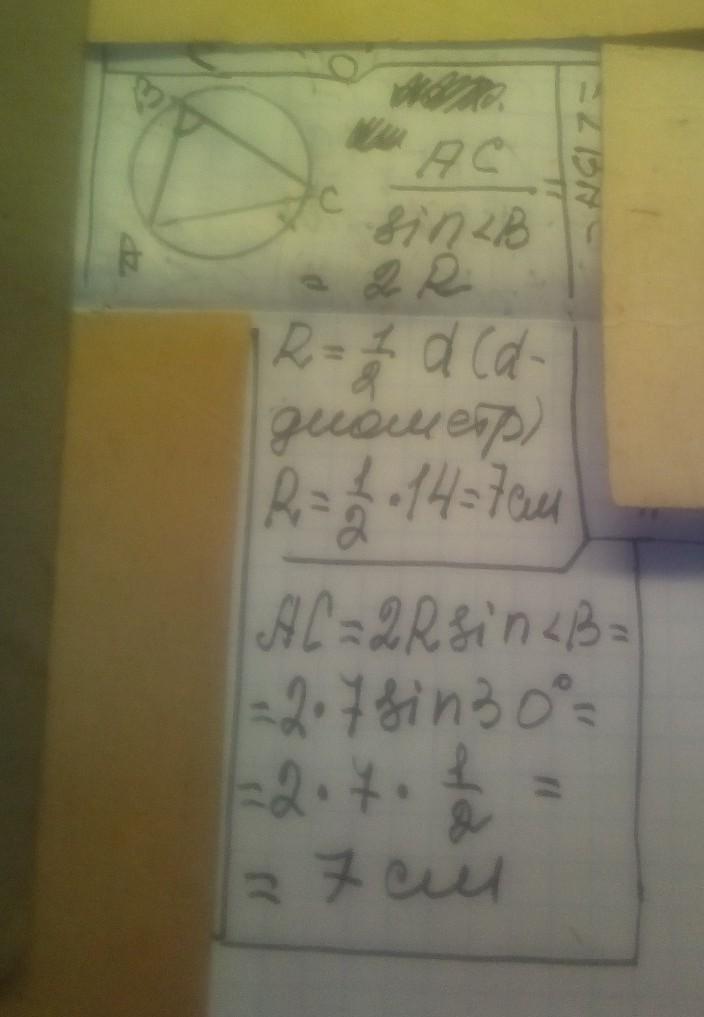 B
C
A
AC
sin<B
=
= 2R
R = 1/2 d (d-
диометр)
R = 1/2 · 14 = 7 см
AC = 2R sin<B =
= 2 · 7 sin 30° =
= 2 · 7 · 1/2 =
= 7 см